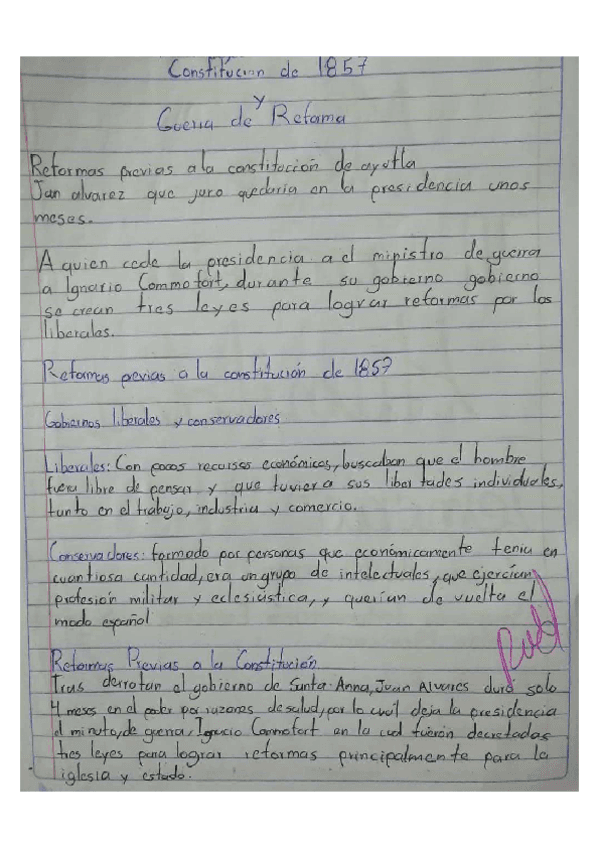 Constitucion de 1857
y
Guerra de Reforma
Reformas previas a la constitución de ayutla
Jan alvarez que juro quedaria en la presidencia unos
meses.
A quien cede la presidencia a el ministro de guerra
a Ignacio Commofort, durante su gobierno gobierno
se crean tres leyes para lograr reformas por los
liberales.
Reformas pevias a la constitución de 1857
Gobiernos liberales y conservadores
Liberales: Con pocos recursos económicos, buscaban que el hombre
fuera libre de pensar y que tuviera sus libertades individuales,
tanto en el trabajo, industria y comercio.
Conservadores: formado por personas que económicamente tenia en
cuantiosa cantidad, era un grupo de intelectuales, que ejercían
profesión militar y eclesiástica, y querían de vuelta el
modo español
Reformas Previas a la Constitución
Tras derrotan el gobierno de Santa-Anna, Juan Alvares duró solo
4 meses en el poder por razones de salud, por lo cual deja la presidencia
el minuto, de guerra, Ignacio Commofort en la cual fueron decretadas
tres leyes para lograr reformas principalmente para la
iglesia y estado.